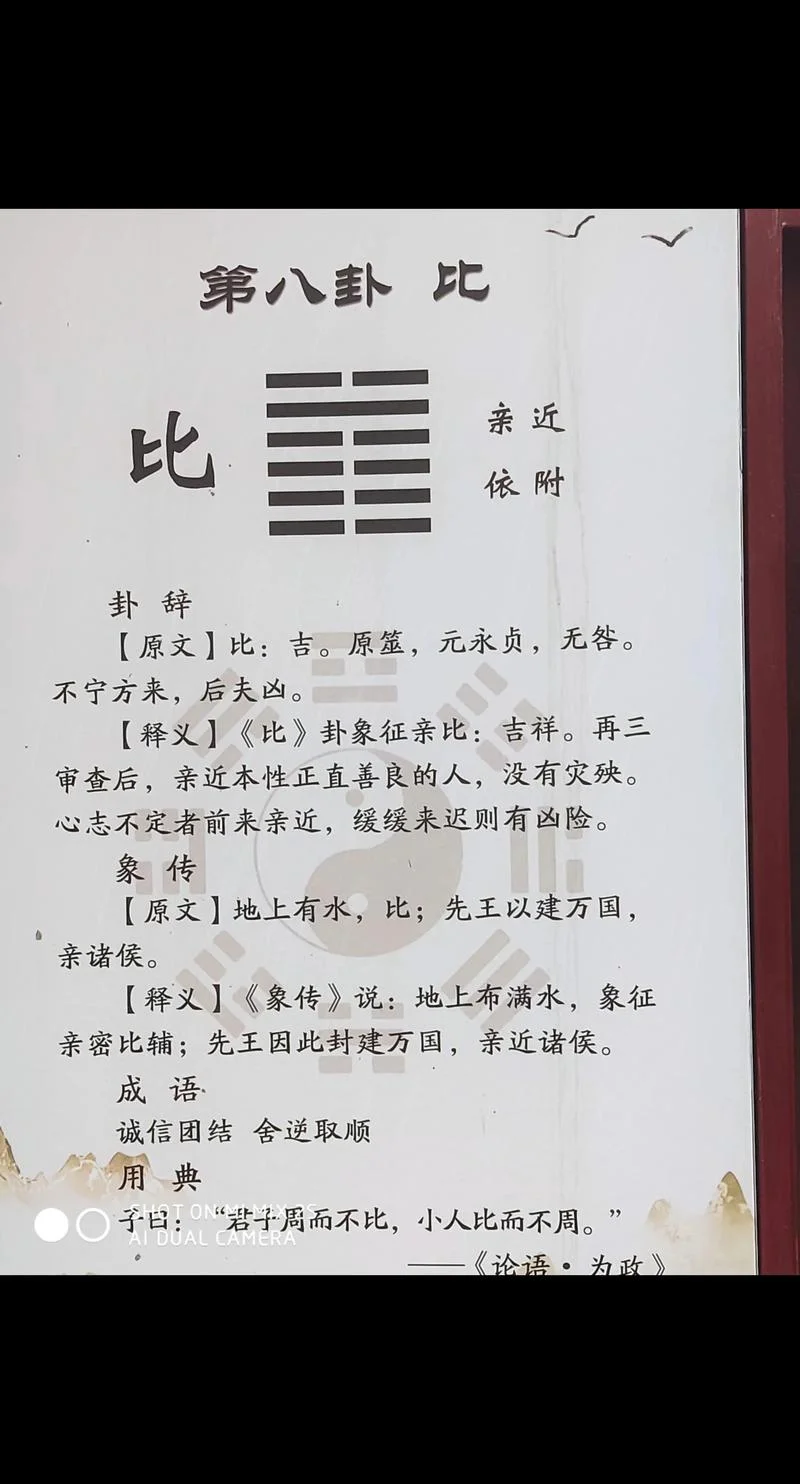 第八卦 比
比
亲近
依附
卦辞
【原文】比：吉。原筮，元永贞，无咎。
不宁方来，后夫凶。
【释义】《比》卦象征亲比：吉祥。再三
审查后，亲近本性正直善良的人，没有灾殃。
心志不定者前来亲近，缓缓来迟则有凶险。
象传
【原文】地上有水，比；先王以建万国，
亲诸侯。
【释义】《象传》说：地上布满水，象征
亲密比辅；先王因此封建万国，亲近诸侯。
成语
诚信团结 舍逆取顺
用典
子曰：“君子周而不比，小人比而不周。”
——《论语·为政》
SHOT ON MI MIX 2S
AI DUAL CAMERA